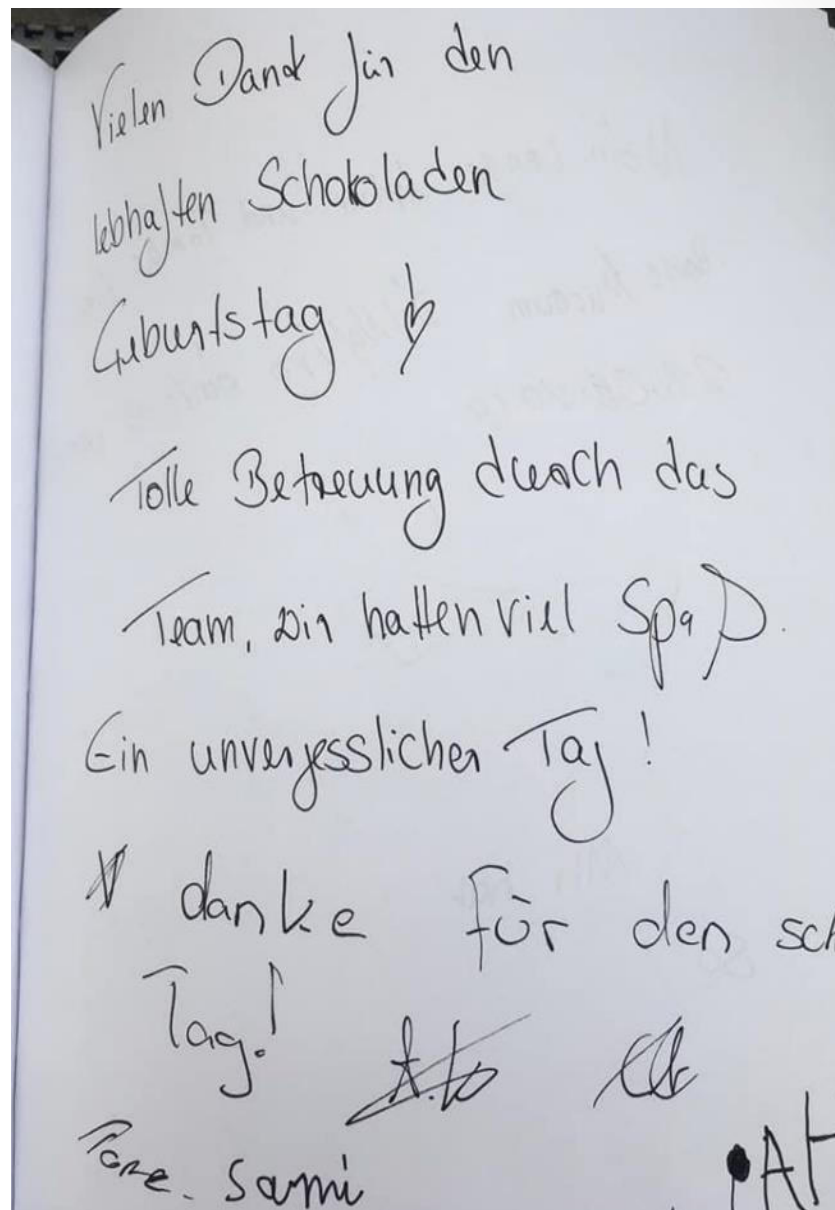 Vielen Dank für den
lebhaften Schokoladen
Geburtstag
Tolle Betreuung durch das
Team, wir hatten viel Spaß.
Ein unvergesslicher Tag!
danke für den sch
Tag!
Sami
AH